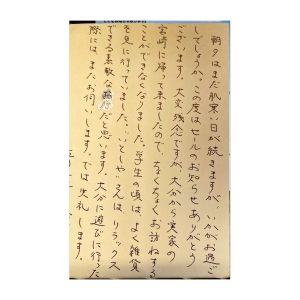 朝夕はまだ肌寒い日が続きますが、いかがお過ご
しでしょうか。この度はセールのお知らせありがとう
ございます。大変残念ですが、大分から実家の
宮崎に帰って来ましたので、ちょくちょくお訪ねする
ことができなくなりました。学生の頃は、よく雑貨
を見に行っていました。いとしや さんは、リラックス
できる素敵な場所だと思います。大分に遊びに行った
際には、またお伺いします。では失礼します。